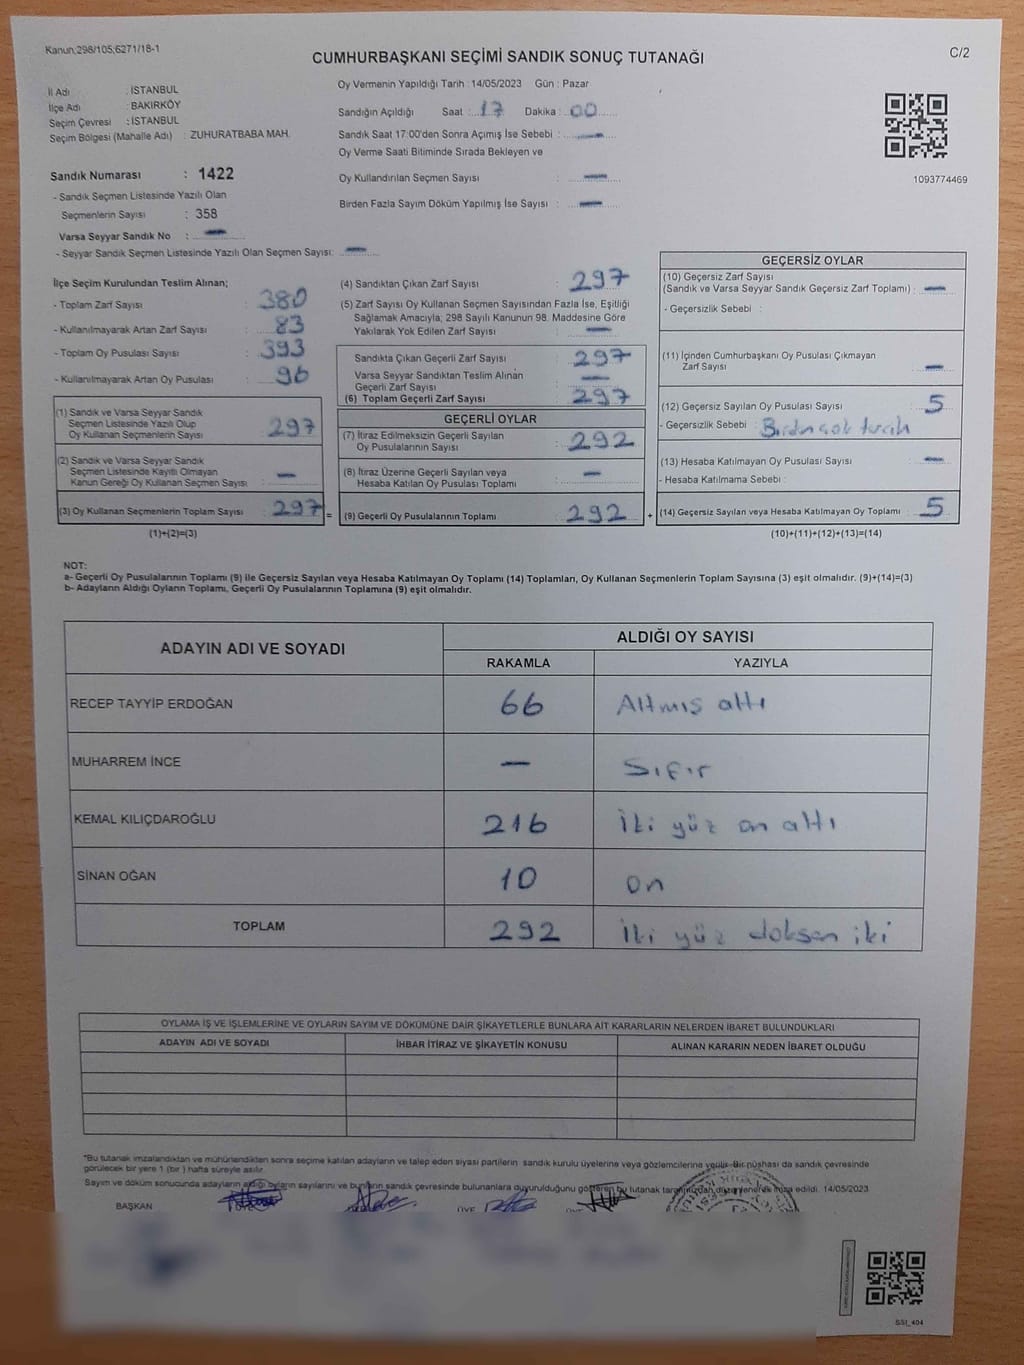 Kanun;298/105;6271/18-1
C/2
CUMHURBAŞKANI SEÇİMİ SANDIK SONUÇ TUTANAĞI
İl Adı : İSTANBUL
İlçe Adı : BAKIRKÖY
Seçim Çevresi : İSTANBUL
Seçim Bölgesi (Mahalle Adı) : ZUHURATBABA MAH.
Sandık Numarası : 1422
- Sandık Seçmen Listesinde Yazılı Olan
Seçmenlerin Sayısı : 358
Varsa Seyyar Sandık No : —
- Seyyar Sandık Seçmen Listesinde Yazılı Olan Seçmen Sayısı: —
Oy Vermenin Yapıldığı Tarih : 14/05/2023 Gün : Pazar
Sandığın Açıldığı Saat : 17 Dakika : 00
Sandık Saat 17:00'den Sonra Açımış İse Sebebi : —
Oy Verme Saati Bitiminde Sırada Bekleyen ve
Oy Kullandırılan Seçmen Sayısı : —
Birden Fazla Sayım Döküm Yapılmış İse Sayısı : —
1093774469
İlçe Seçim Kurulundan Teslim Alınan;
- Toplam Zarf Sayısı : 380
- Kullanılmayarak Artan Zarf Sayısı : 83
- Toplam Oy Pusulası Sayısı : 393
- Kullanılmayarak Artan Oy Pusulası : 96
(1) Sandık ve Varsa Seyyar Sandık
Seçmen Listesinde Yazılı Olup
Oy Kullanan Seçmenlerin Sayısı : 297
(2) Sandık ve Varsa Seyyar Sandık
Seçmen Listesinde Kayıtlı Olmayan
Kanun Gereği Oy Kullanan Seçmen Sayısı : —
(3) Oy Kullanan Seçmenlerin Toplam Sayısı : 297 =
(1)+(2)=(3)
(4) Sandıktan Çıkan Zarf Sayısı : 297
(5) Zarf Sayısı Oy Kullanan Seçmen Sayısından Fazla İse, Eşitliği
Sağlamak Amacıyla; 298 Sayılı Kanunun 98. Maddesine Göre
Yakılarak Yok Edilen Zarf Sayısı : —
Sandıkta Çıkan Geçerli Zarf Sayısı : 297
Varsa Seyyar Sandıktan Teslim Alınan
Geçerli Zarf Sayısı : —
(6) Toplam Geçerli Zarf Sayısı : 297
GEÇERLİ OYLAR
(7) İtiraz Edilmeksizin Geçerli Sayılan
Oy Pusulalarının Sayısı : 292
(8) İtiraz Üzerine Geçerli Sayılan veya
Hesaba Katılan Oy Pusulası Toplamı : —
(9) Geçerli Oy Pusulalarının Toplamı : 292 +
GEÇERSİZ OYLAR
(10) Geçersiz Zarf Sayısı
(Sandık ve Varsa Seyyar Sandık Geçersiz Zarf Toplamı) : —
- Geçersizlik Sebebi :
(11) İçinden Cumhurbaşkanı Oy Pusulası Çıkmayan
Zarf Sayısı : —
(12) Geçersiz Sayılan Oy Pusulası Sayısı : 5
- Geçersizlik Sebebi : Birden çok tercih
(13) Hesaba Katılmayan Oy Pusulası Sayısı : —
- Hesaba Katılmama Sebebi :
(14) Geçersiz Sayılan veya Hesaba Katılmayan Oy Toplamı : 5
(10)+(11)+(12)+(13)=(14)
NOT:
a- Geçerli Oy Pusulalarının Toplamı (9) ile Geçersiz Sayılan veya Hesaba Katılmayan Oy Toplamı (14) Toplamları, Oy Kullanan Seçmenlerin Toplam Sayısına (3) eşit olmalıdır. (9)+(14)=(3)
b- Adayların Aldığı Oyların Toplamı, Geçerli Oy Pusulalarının Toplamına (9) eşit olmalıdır.
ADAYIN ADI VE SOYADI ALDIĞI OY SAYISI
RAKAMLA YAZIYLA
RECEP TAYYİP ERDOĞAN 66 Altmış altı
MUHARREM İNCE — Sıfır
KEMAL KILIÇDAROĞLU 216 İki yüz on altı
SİNAN OĞAN 10 on
TOPLAM 292 İki yüz doksan iki
OYLAMA İŞ VE İŞLEMLERİNE VE OYLARIN SAYIM VE DÖKÜMÜNE DAİR ŞİKAYETLERLE BUNLARA AİT KARARLARIN NELERDEN İBARET BULUNDUKLARI
ADAYIN ADI VE SOYADI İHBAR İTİRAZ VE ŞİKAYETİN KONUSU ALINAN KARARIN NEDEN İBARET OLDUĞU
*Bu tutanak imzalandıktan ve mühürlendikten sonra seçime katılan adayların ve talep eden siyasi partilerin sandık kurulu üyelerine veya gözlemcilerine verilir. Bir nüshası da sandık çevresinde
görülecek bir yere 1 (bir) hafta süreyle asılır.
Sayım ve döküm sonucunda adayların aldığı oyların sayılarını ve bunların sandık çevresinde bulunanlara duyurulduğunu gösteren bu tutanak tarafımızdan düzenlenerek imza edildi. 14/05/2023
BAŞKAN ÜYE
SSI_404